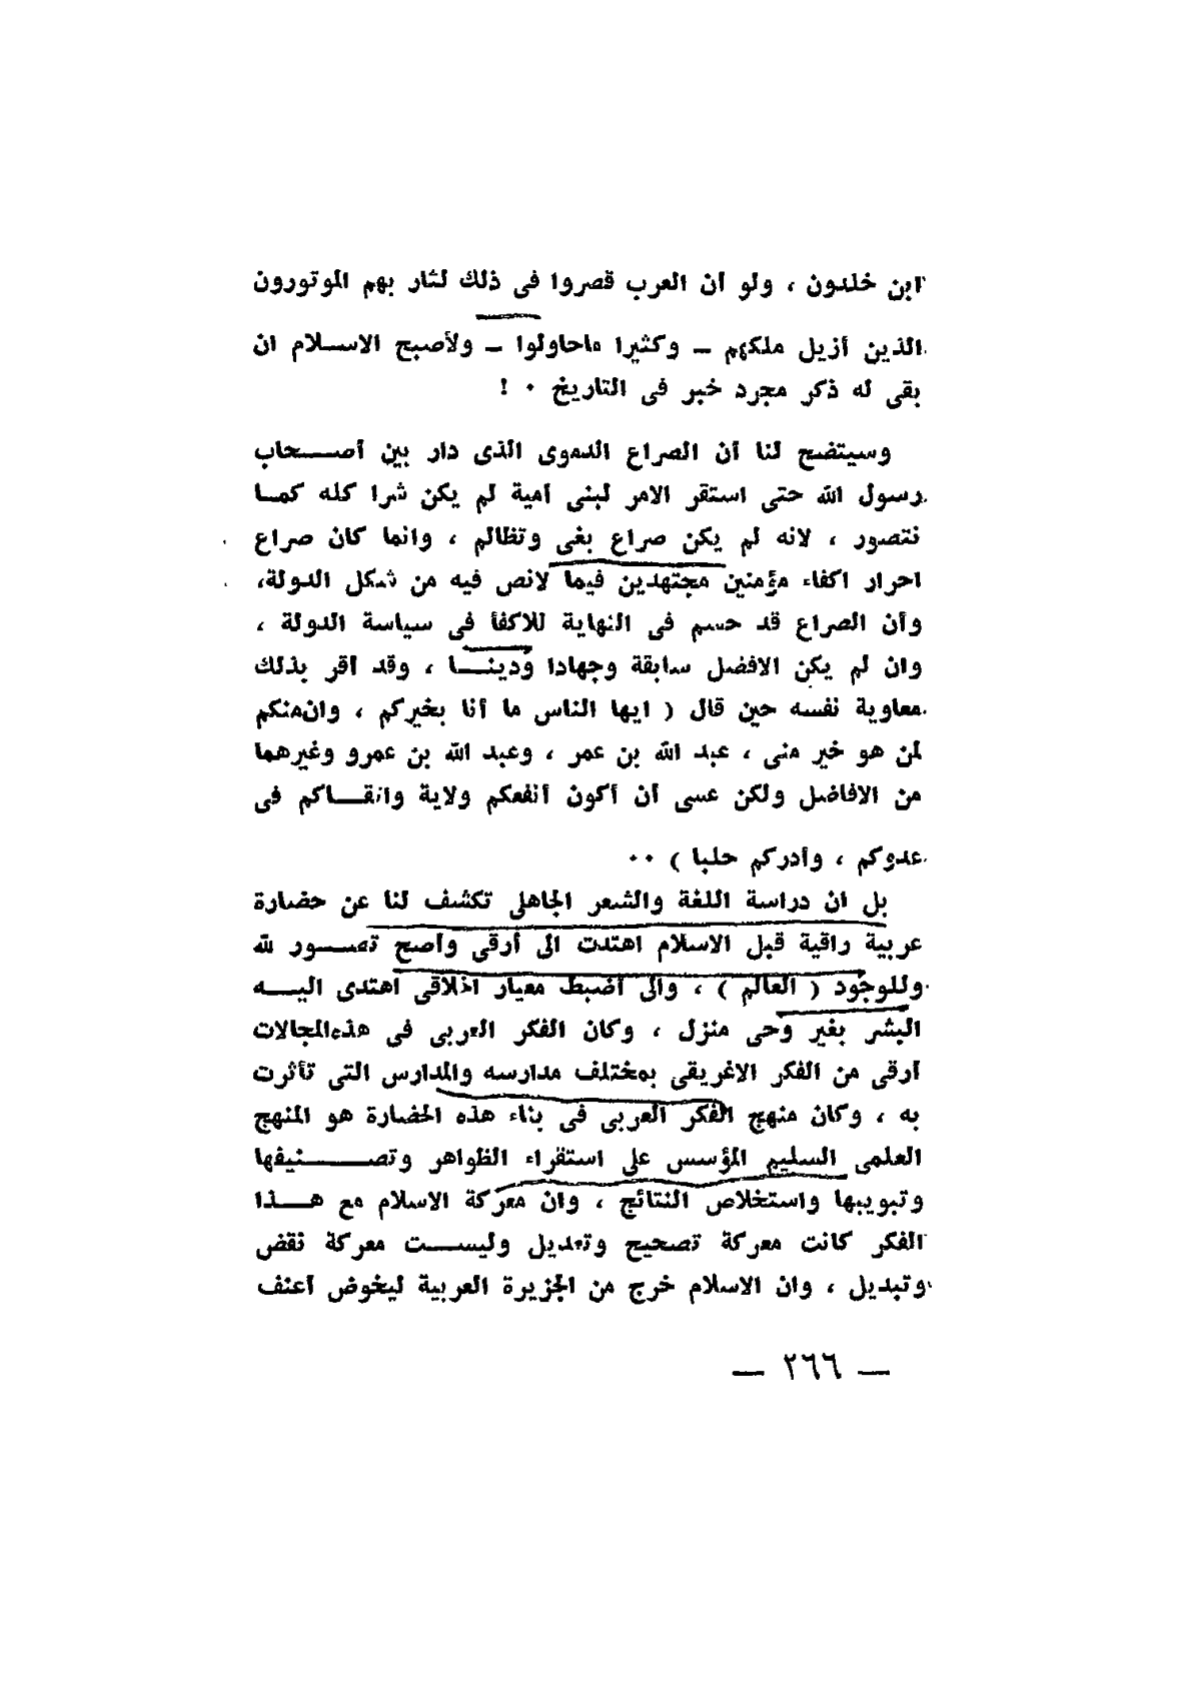 ابن خلدون ، ولو أن العرب قصروا فى ذلك لثار بهم الموتورون
الذين أزيل ملكهم – وكثيرا ماحاولوا – ولأصبح الاسلام ان
بقى له ذكر مجرد خبر فى التاريخ ٠ !
وسيتضح لنا أن الصراع الدموى الذى دار بين أصحاب
رسول الله حتى استقر الامر لبنى أمية لم يكن شرا كله كما
نتصور ، لانه لم يكن صراع بغى وتظالم ، وانما كان صراع
احرار اكفاء مؤمنين مجتهدين فيما لانص فيه من شكل الدولة،
وأن الصراع قد حسم فى النهاية للاكفأ فى سياسة الدولة ،
وان لم يكن الافضل سابقة وجهادا ودينا ، وقد أقر بذلك
معاوية نفسه حين قال ( ايها الناس ما أنا بخيركم ، وان منكم
لمن هو خير منى ، عبد الله بن عمر ، وعبد الله بن عمرو وغيرهما
من الافاضل ولكن عسى أن أكون أنفعكم ولاية وانقاكم فى
عدوكم ، وأدركم حلبا ) ٠٠
بل ان دراسة اللغة والشعر الجاهلى تكشف لنا عن حضارة
عربية راقية قبل الاسلام اهتدت الى أرقى وأصح تصور لله
وللوجود ( العالم ) ، والى أضبط معيار اخلاقى اهتدى اليه
البشر بغير وحى منزل ، وكان الفكر العربى فى هذه المجالات
أرقى من الفكر الاغريقى بمختلف مدارسه والمدارس التى تأثرت
به ، وكان منهج الفكر العربى فى بناء هذه الحضارة هو المنهج
العلمى السليم المؤسس على استقراء الظواهر وتصنيفها
وتبويبها واستخلاص النتائج ، وان معركة الاسلام مع هذا
الفكر كانت معركة تصحيح وتعديل وليست معركة نقض
وتبديل ، وان الاسلام خرج من الجزيرة العربية ليخوض أعنف
— ٢٦٦ —